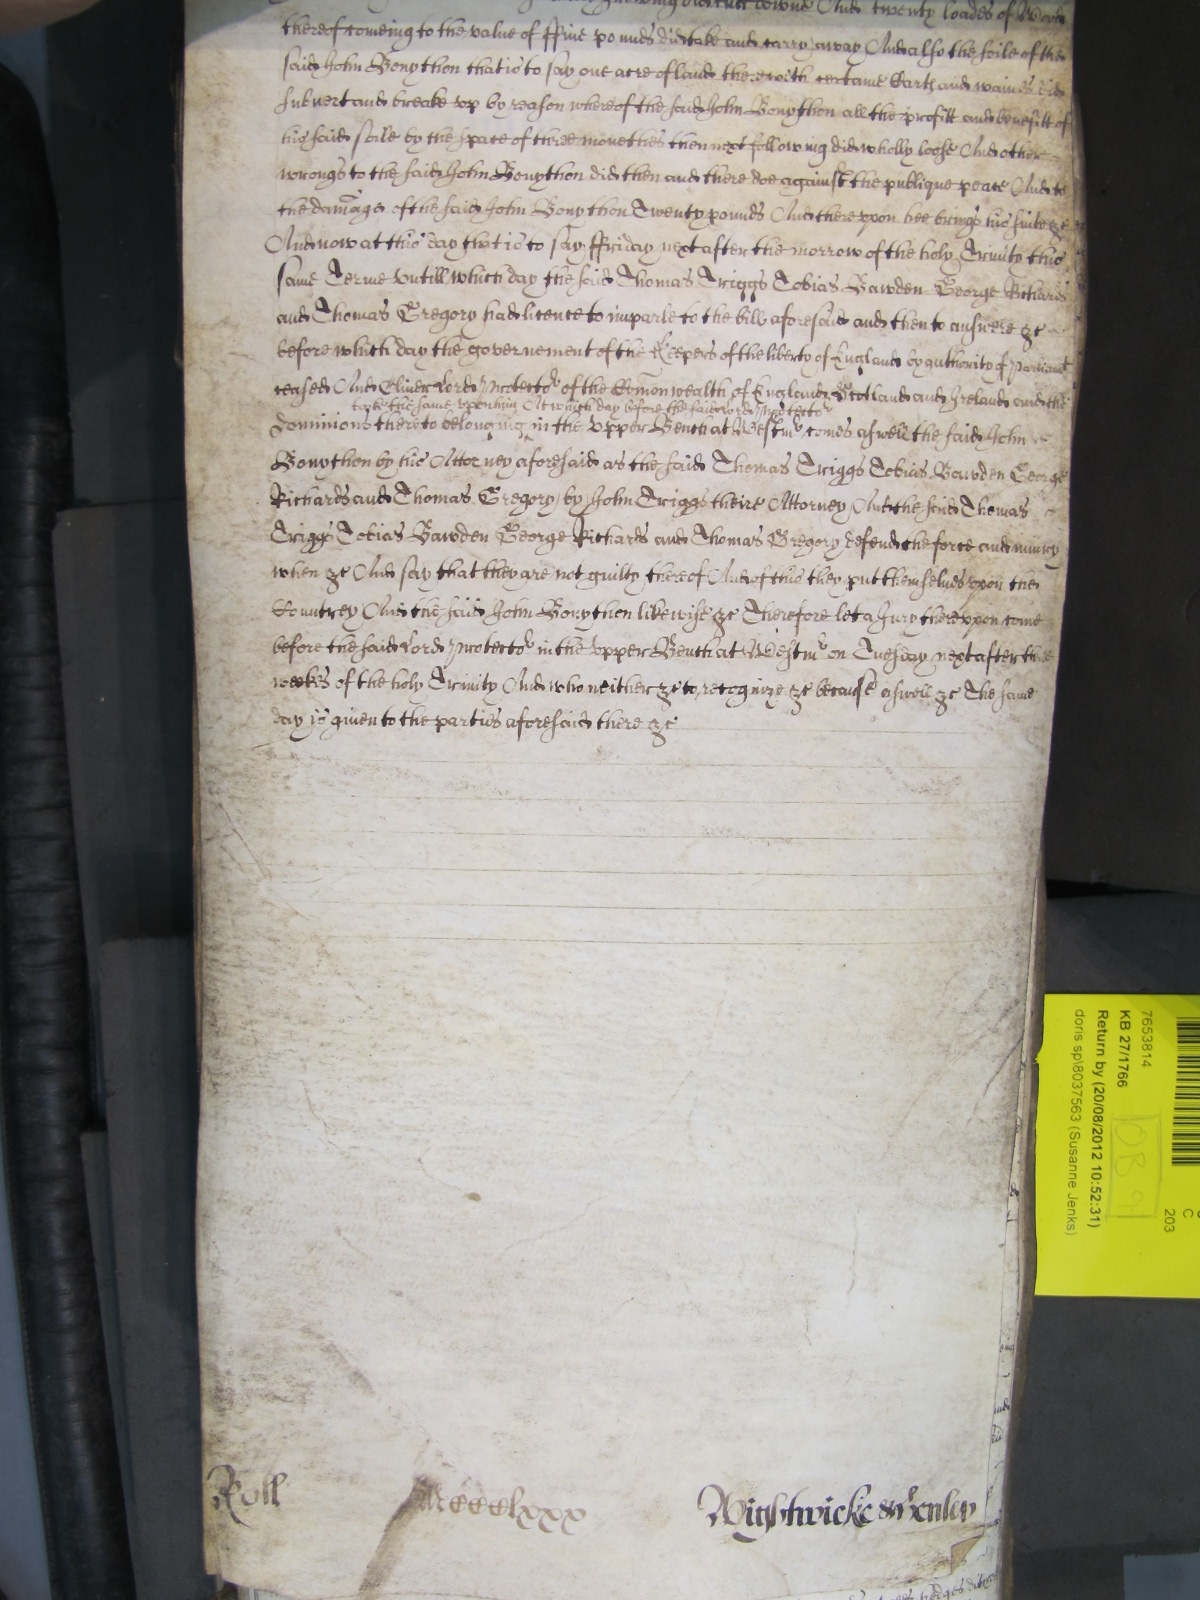 growing did cutt downe And twenty loades of Wood
thereof comeing to the value of ffive pounds did take and carry away And also the soile of the
said John Bonython that is to say one acre of land there with certaine Carts and waines did
subvert and breake vp by reason whereof the said John Bonython all the profitt and benefitt of
his said soile by the space of three monethes then next following did wholly loose And other
wrongs to the said John Bonython did then and there doe against the publique peace And to
the damage of the said John Bonython Twenty pounds And therevpon hee brings his suite &c
And now at this day that is to say ffriday next after the morrow of the holy Trinity this
same Terme vntill which day the said Thomas Triggs Tobias Bawden George Richards
and Thomas Gregory had licence to imparle to the bill aforesaid and then to answere &c
before which day the governement of the Keepers of the liberty of England by authority of Parliamt
ceased And Oliver Lord Protector of the Comon wealth of England Scotland and Ireland and the
tooke the same vpon him At which day before the said Lord Protector
Dominions thereto belonging in the vpper Bench at Westmr comes aswell the said John
Bonython by his Attorney aforesaid as the said Thomas Triggs Tobias Bawden George
Richards and Thomas Gregory by John Triggs theire Attorney And the said Thomas
Triggs Tobias Bawden George Richards and Thomas Gregory defend the force and iniury
when &c And say that they are not guilty thereof And of this they put themselves vpon the
Countrey And the said John Bonython likewise &c Therefore let a Jury therevpon come
before the said Lord Protector in the vpper Bench at Westmr on Tuesday next after three
weekes of the holy Trinity And who neither &c to recognize &c because aswell &c The same
day is given to the parties aforesaid there &c
Roll
Mccclxxx
Wightwicke &
7653814
KB 27/1766
Return by (20/08/2012 10:52:31)
doris sp\8037563 (Susanne Jenks)
203
C